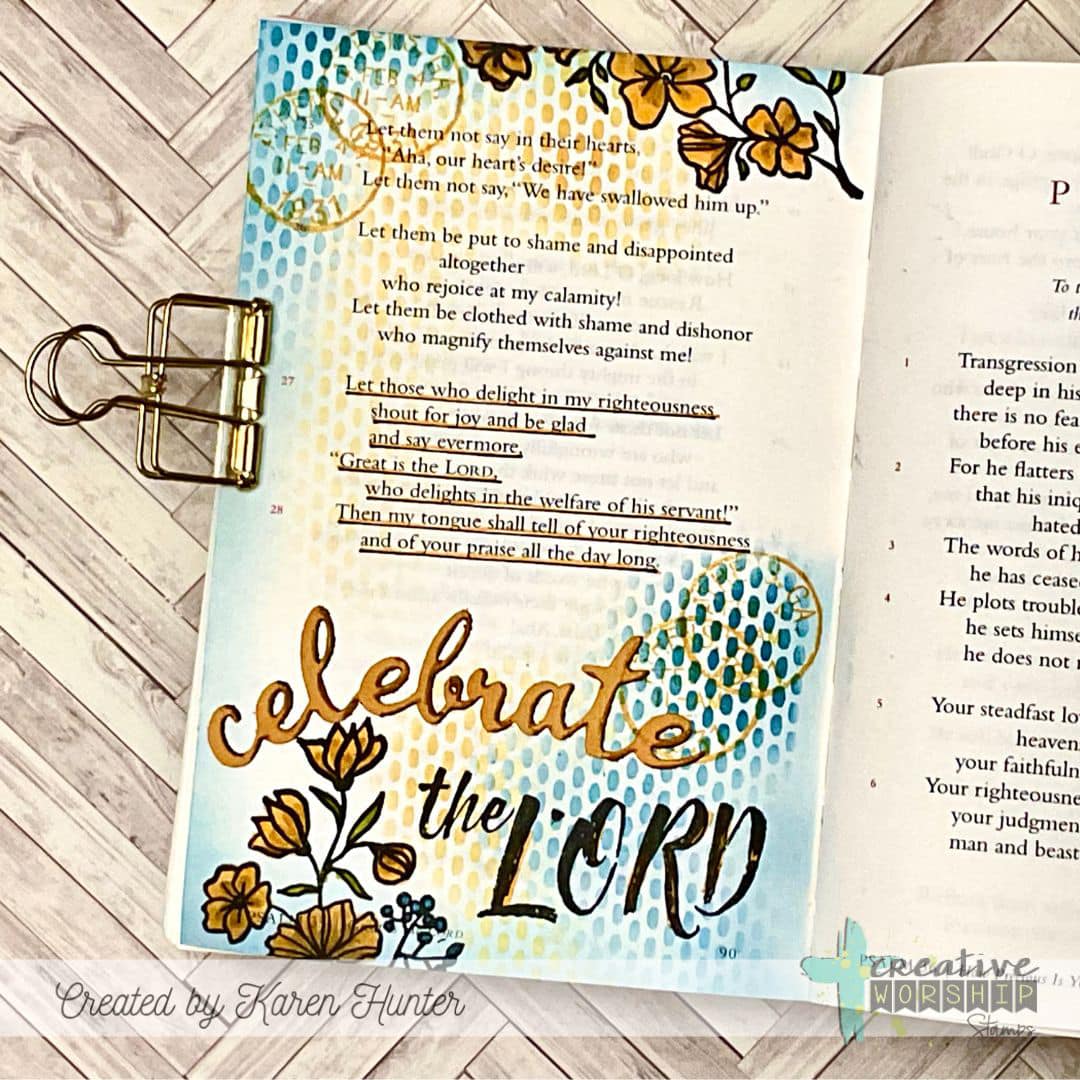 FEB 4
11-AM
FEB 4
11-AM
1931
Let them not say in their hearts,
"Aha, our heart's desire!"
Let them not say, "We have swallowed him up."
Let them be put to shame and disappointed
altogether
who rejoice at my calamity!
Let them be clothed with shame and dishonor
who magnify themselves against me!
27 Let those who delight in my righteousness
shout for joy and be glad
and say evermore,
"Great is the LORD,
who delights in the welfare of his servant!"
28 Then my tongue shall tell of your righteousness
and of your praise all the day long.
GA
celebrate
the LORD
90
P
To t
th
1 Transgression
deep in his
there is no fea
before his e
2 For he flatters
that his iniq
hated
3 The words of h
he has cease
4 He plots trouble
he sets himse
he does not r
5 Your steadfast lo
heaven
your faithfuln
6 Your righteousne
your judgmen
man and beast
Created by Karen Hunter
creative
WORSHIP
Stamps